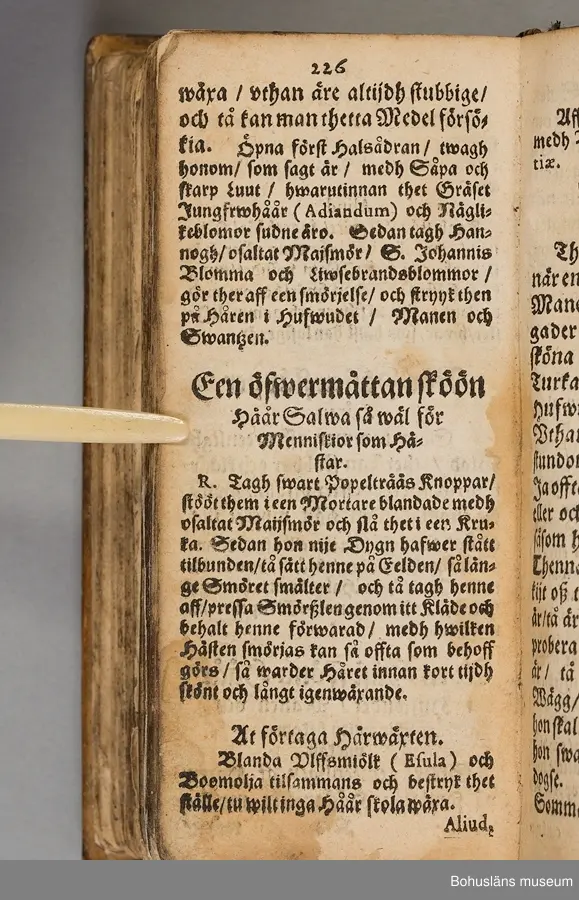 226
wäxa / vthan äre altijdh stubbige/
och tå kan man thetta Medel försö-
kia. Öpna först Halsådran / twagh
honom/ som sagt är / medh Såpa och
skarp Luut / hwarutinnan thet Gräset
Jungfrwhåår (Adiandum) och Nägli-
keblomor sudne äro. Sedan tagh Han-
nogh/ osaltat Majsmör/ S. Johannis
Blomma och Liwsebrandsblommor /
gör ther aff een smörjelse/ och stryyk then
på Håren i Hufwudet / Manen och
Swantzen.
Een öfwermåttan sköön
Håår Salwa så wäl för
Menniskior som Hä-
star.
R. Tagh swart Popelträäs Knoppar/
stööt them i een Mortare blandade medh
osaltat Maijsmör och slå thet i een Kru-
ka. Sedan hon nije Dygn hafwer stått
tilbunden/ tå sätt henne på Eelden/ så län-
ge Smöret smälter / och tå tagh henne
aff/ pressa Smörßlen genom itt Kläde och
behalt henne förwarad/ medh hwilken
Hästen smörjas kan så offta som behoff
görs/ så warder Håret innan kort tijdh
skönt och långt igenwäxande.
At förtaga Hårwäxten.
Blanda Vlffsmiölk (Esula) och
Boomolja tilsammans och bestryk thet
ställe/ tu wilt inga Håår skola wäxa.
Aliud,
Aff
medh
tiæ.
Th
när en
Mane
gader
sköna
Turka
Hufw
Vtha
stundo
Ja offt
eller oc
såsom h
Thenn
kijt oß t
är/ tå är
probera
är/ tå
Wägg/
hon skal
hon swa
dogse.
Somm
Bohusläns museum